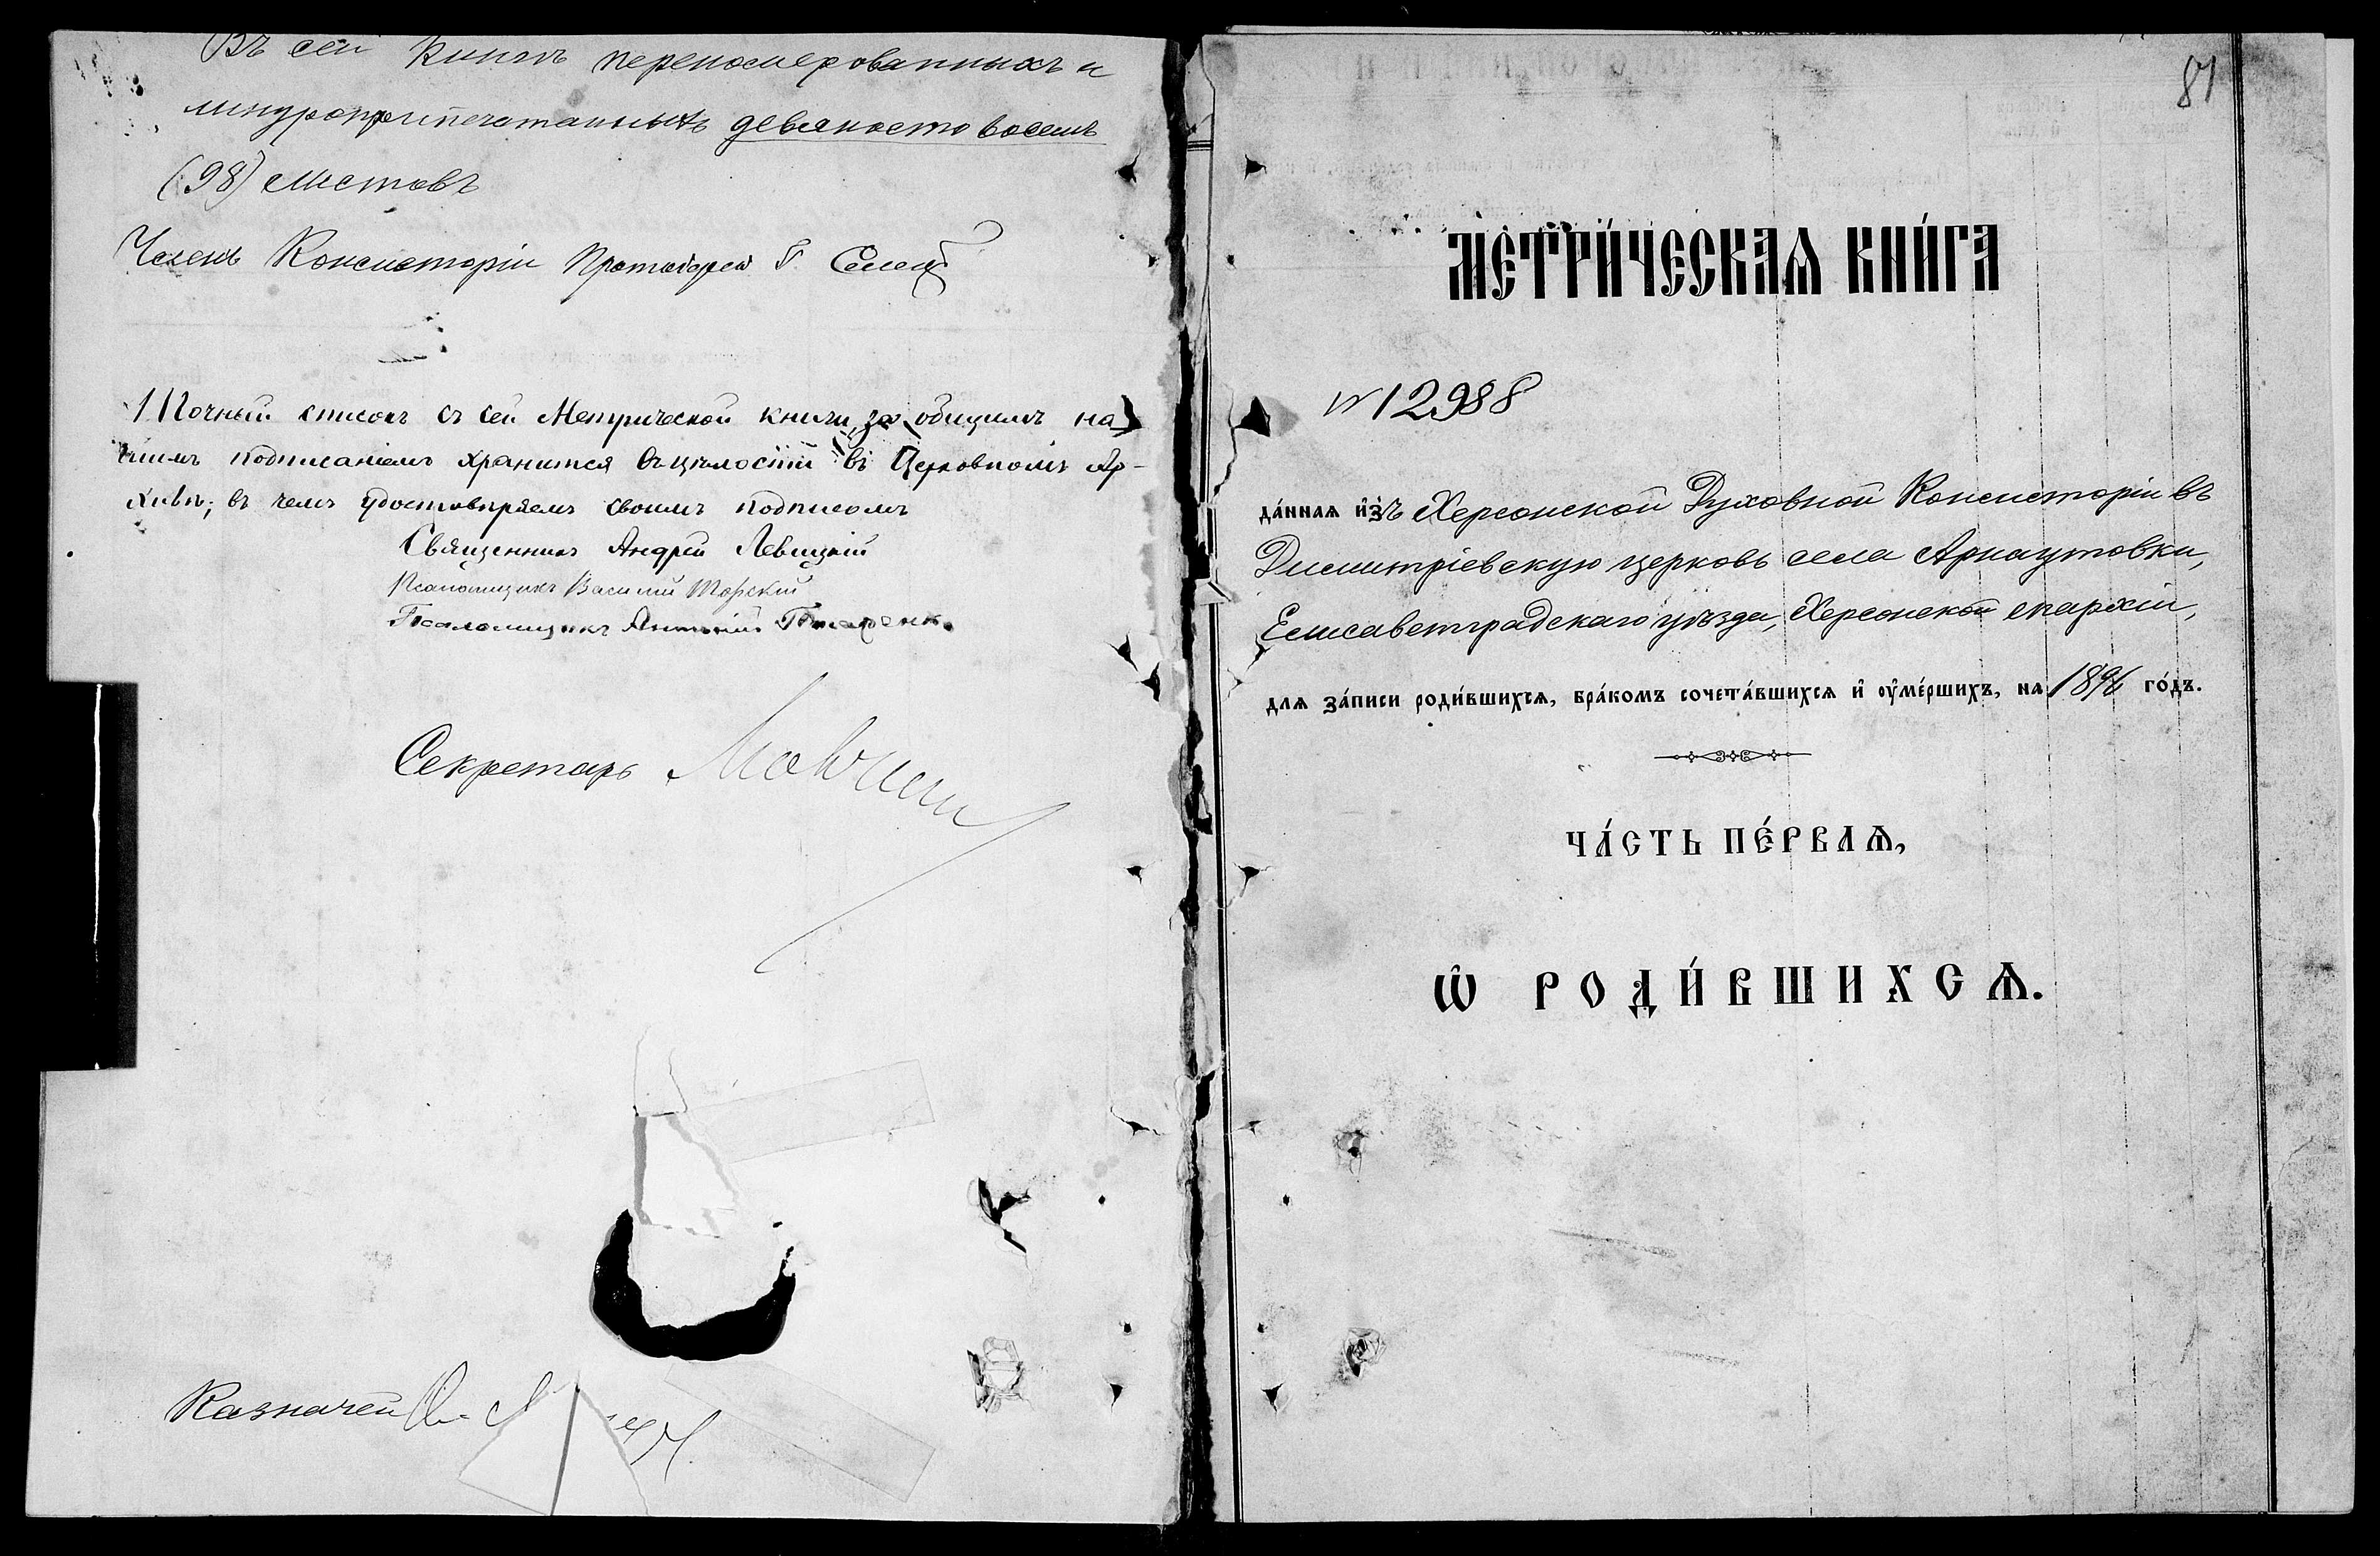 Въ сей книгѣ перенумерованныхъ и
шнуроприпечатанныхъ девяносто восемь
(98) листовъ
Членъ Консисторіи Протоіерей
Точный списокъ съ сей Метрической книги, за общимъ на-
шимъ подписаніемъ хранится въ цѣлости въ Церковномъ Ар-
хивѣ; въ чемъ удостовѣряемъ своимъ подписомъ
Священникъ Андрей Левицкій
Псаломщикъ Василий Торскій
Псаломщикъ Антоній
Секретарь
Казначей
87
МЕТРИ́ЧЕСКАѦ КНИ́ГА
№ 12988
да́нная изъ Херсонской Духовной Консисторіи въ
Димитріевскую церковь села Арнаутовки,
Елисаветградскаго уѣзда, Херсонской епархіи,
для за́писи роди́вшихсѧ, бра́комъ сочета́вшихсѧ и оуме́ршихъ, на 1896 го́дъ.
ЧА́СТЬ ПЕ́РВАѦ,
Ѡ РОДИ́ВШИХСѦ.